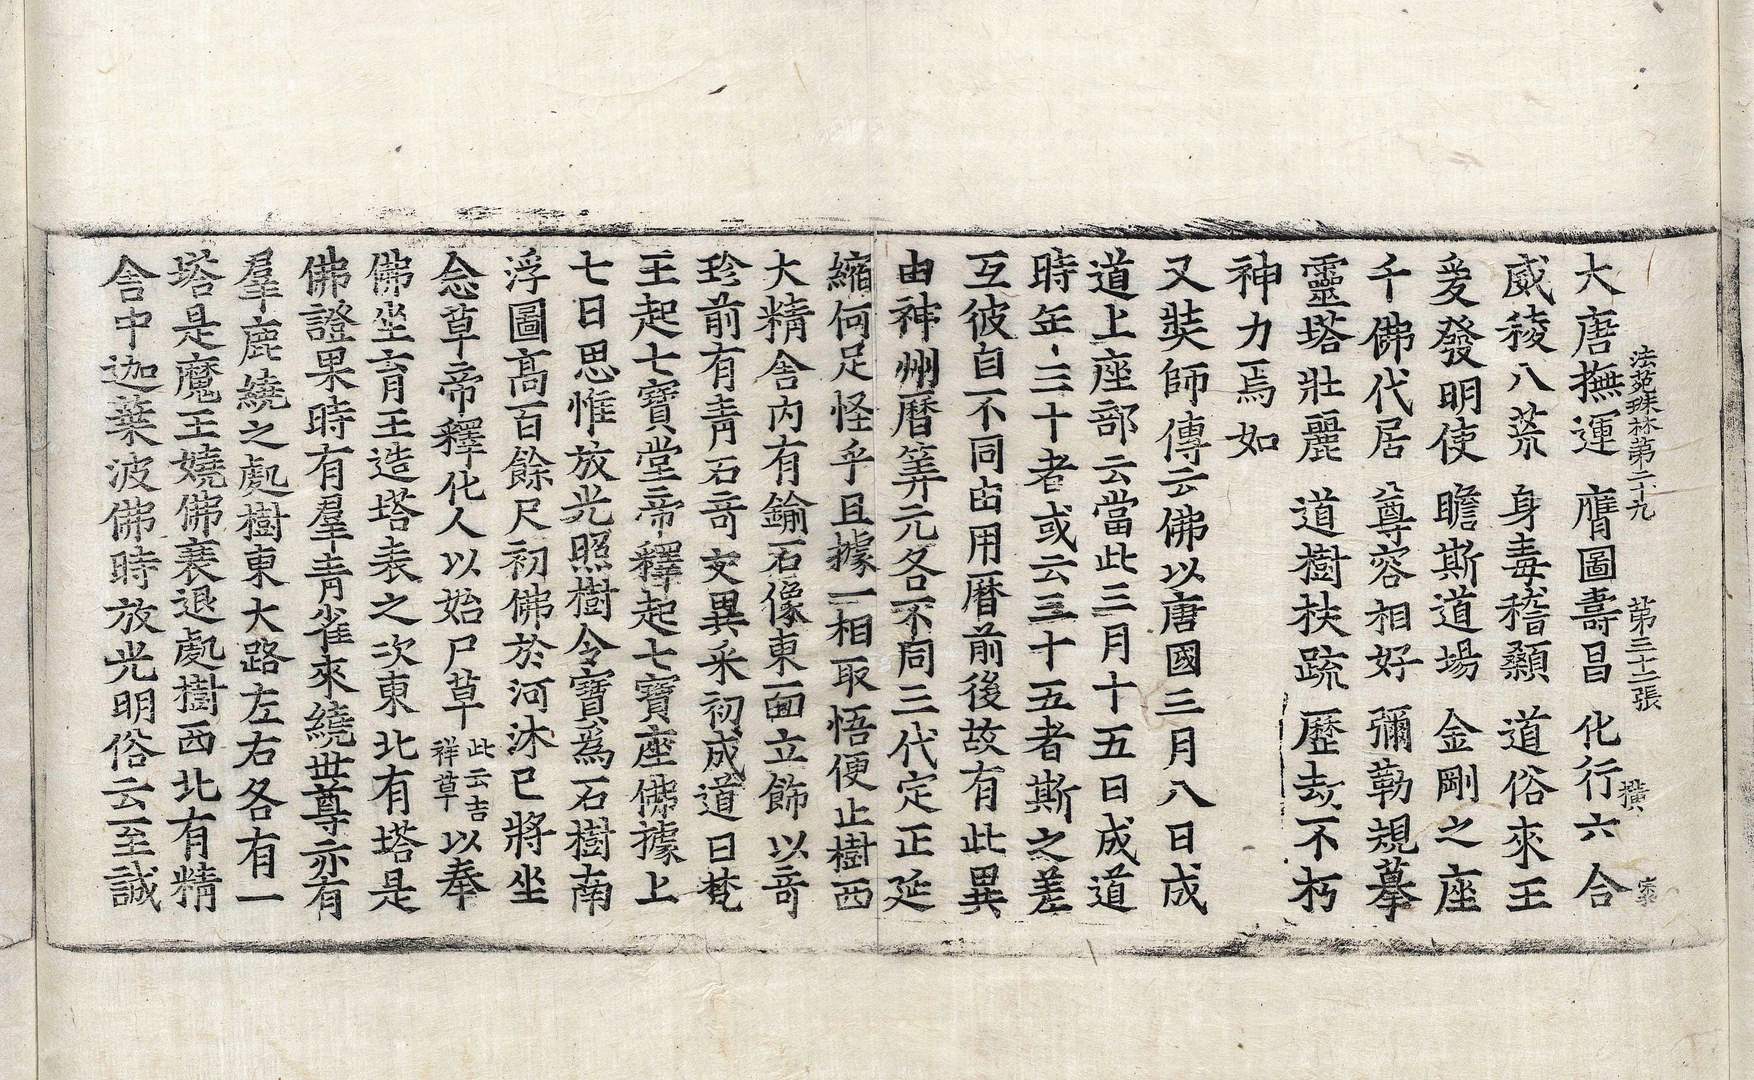 法苑珠林第二十九 第三十二張 橫 宗
大唐撫運 膺圖壽昌 化行六合
威稜八荒 身毒稽顙 道俗來王
爰發明使 瞻斯道場 金剛之座
千佛代居 尊容相好 彌勒規摹
靈塔壯麗 道樹扶疏 歷劫不朽
神力焉如
又奘師傳云佛以唐國三月八日成
道上座部云當此三月十五日成道
時年三十者或云三十五者斯之差
互彼自不同由用曆前後故有此異
由神州曆筭元各不同三代定正延
縮何足怪乎且據一相取悟便止樹西
大精舍內有鍮石像東面立飾以奇
珍前有青石奇文異采初成道日梵
王起七寶堂帝釋起七寶座佛據上
七日思惟放光照樹令寶爲石樹南
浮圖高百餘尺初佛於河沐已將坐
念草帝釋化人以始尸草此云吉祥草以奉
佛坐育王造塔表之次東北有塔是
佛證果時有羣青雀來繞世尊亦有
羣鹿繞之處樹東大路左右各有一
塔是魔王嬈佛衰退處樹西北有精
舍中迦葉波佛時放光明俗云至誠